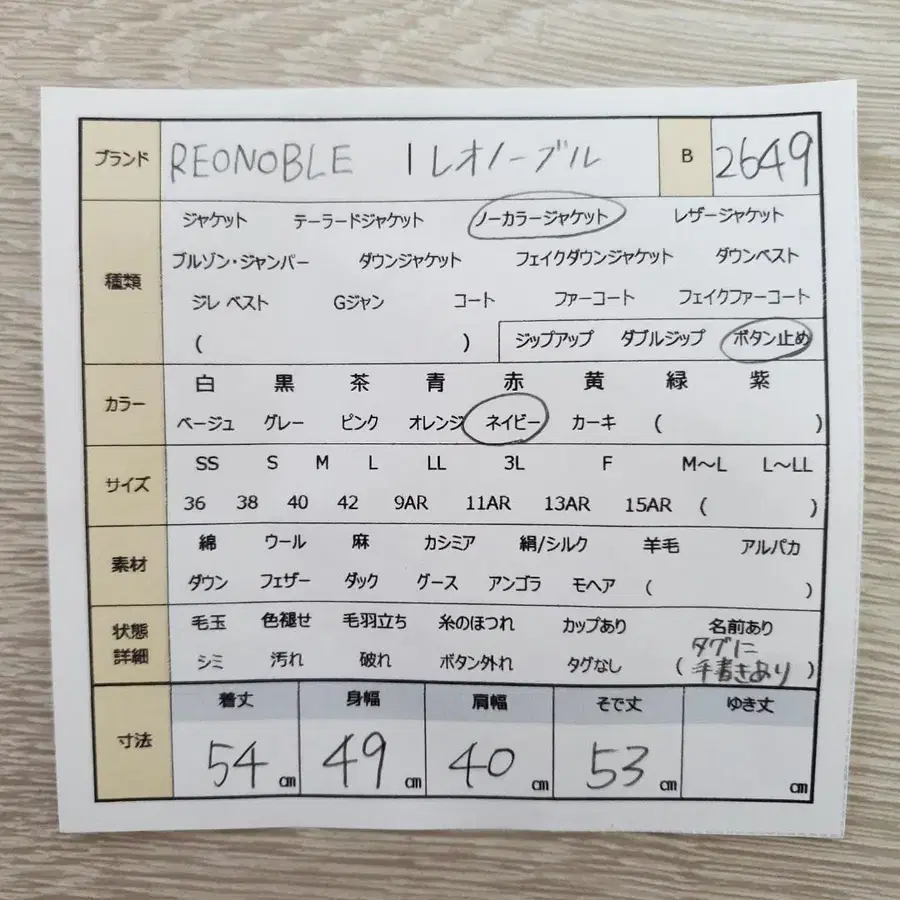 ブランド REONOBLE | レオノーブル B 2649
種類 ジャケット テーラードジャケット ノーカラージャケット レザージャケット
ブルゾン・ジャンパー ダウンジャケット フェイクダウンジャケット ダウンベスト
ジレ ベスト Gジャン コート ファーコート フェイクファーコート
( ) ジップアップ ダブルジップ ボタン止め
カラー 白 黒 茶 青 赤 黄 緑 紫
ベージュ グレー ピンク オレンジ ネイビー カーキ ( )
サイズ SS S M L LL 3L F M〜L L〜LL
36 38 40 42 9AR 11AR 13AR 15AR ( )
素材 綿 ウール 麻 カシミア 絹/シルク 羊毛 アルパカ
ダウン フェザー ダック グース アンゴラ モヘア ( )
状態詳細 毛玉 色褪せ 毛羽立ち 糸のほつれ カップあり 名前あり
シミ 汚れ 破れ ボタン外れ タグなし (タグに手書きあり)
寸法 着丈 身幅 肩幅 そで丈 ゆき丈
54 cm 49 cm 40 cm 53 cm cm